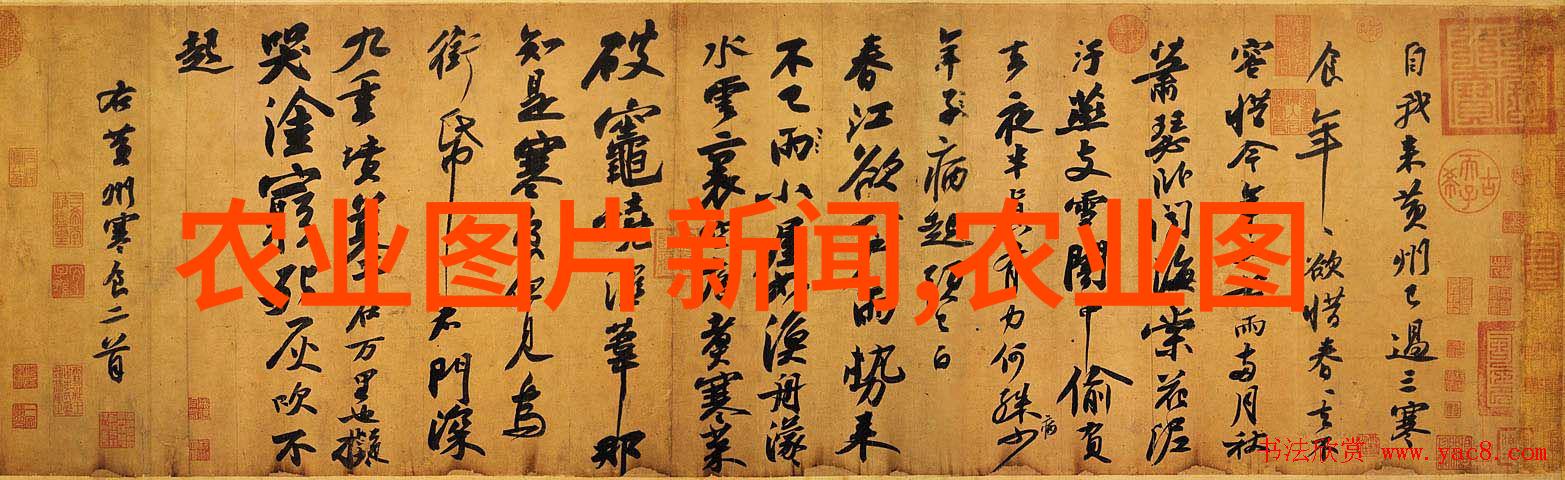 自我来黄州已過三寒
食年〻欲惜春〻去不
容惜今年又苦雨兩月秋
蕭瑟卧聞海棠花泥
汙燕支雪闇中偷負
去夜半真有力何殊少
年子病起頭已白
春江欲入户雨勢来
不已雨小屋如漁舟濛
水雲裏空庖煮寒菜
破竈燒濕葦那
知是寒食但見烏
銜帋君門深
九重墳墓在万里也擬
哭塗窮死灰吹不
起
右黄州寒食二首
农业图片新闻,农业图
书法欣赏 www.yac8.com